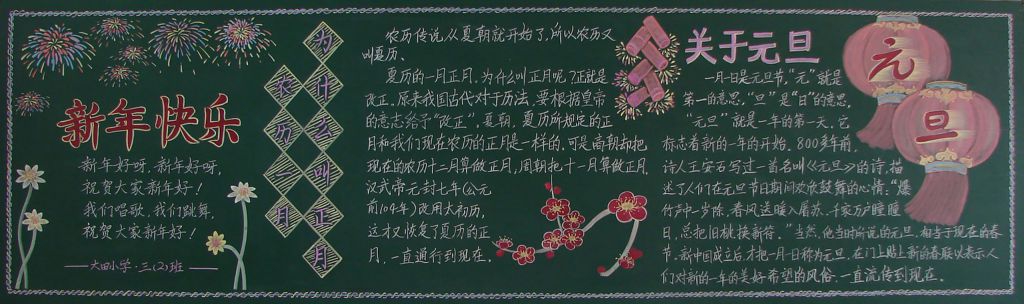 新年快乐
新年好呀,新年好呀,
祝贺大家新年好!
我们唱歌,我们跳舞,
祝贺大家新年好!
——大田小学·三(2)班——
为什么叫正月
农历一月
农历传说从夏朝就开始了,所以农历又
叫夏历。
夏历的一月正月,为什么叫正月呢?正就是
改正。原来我国古代对于历法,要根据皇帝
的意志给予“改正”,夏朝,夏历所规定的正
月和我们现在农历的正月是一样的,可是商朝却把
现在的农历十二月算做正月,周朝把十一月算做正月
汉武帝元封七年(公元
前104年)改用太初历,
这才又恢复了夏历的正
月,一直通行到现在。
关于元旦
一月一日是元旦节,“元”就是
第一的意思,“旦”是“日”的意思,
“元旦”就是一年的第一天,它
标志着新的一年的开始。800多年前,
诗人王安石写过一首名叫《元旦》的诗,描
述了人们在元旦节日期间欢欣鼓舞的心情。“爆
竹声中一岁除,春风送暖入屠苏,千家万户瞳瞳
日,总把旧桃换新符。”当然,他当时所说的元旦,相当于现在的春
节,新中国成立后,才把一月一日称为元旦,在门上贴上新的春联以表示人
们对新的一年的美好希望的风俗,一直流传到现在。
元
旦